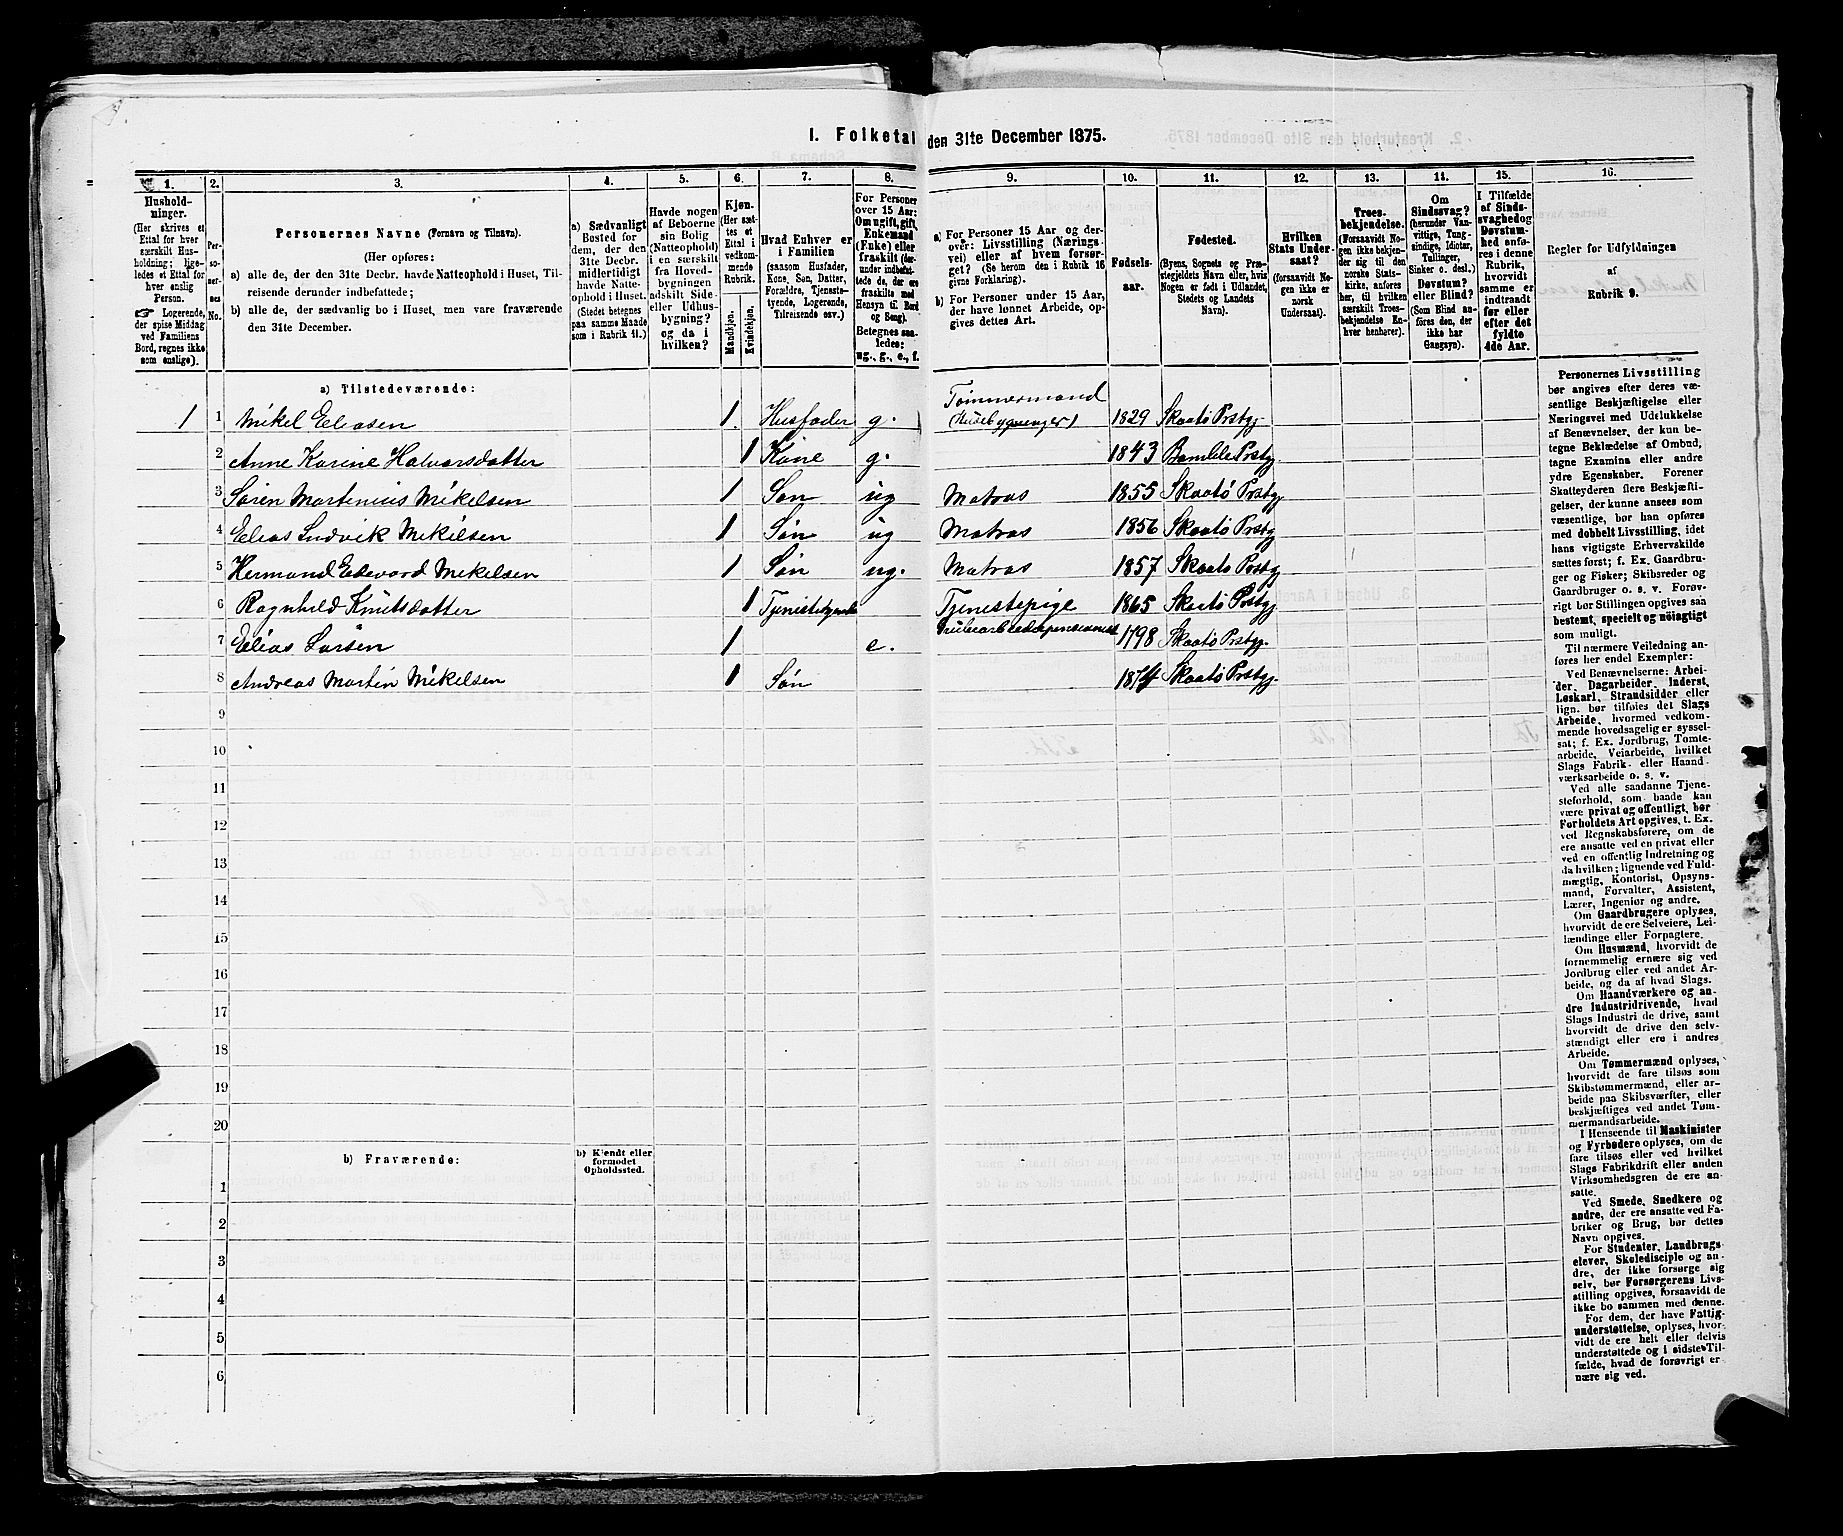 1. Folketal den 31te December 1875.
1. 2. 3. 4. 5. 6. 7. 8. 9. 10. 11. 12. 13. 14. 15. 16.
Hushold-
ninger.
(Her skrives et
Ettal for hver
særskilt Hus-
holdning; lige-
ledes et Ettal for
hver enslig
Person.
☞ Logerende,
der spise Middag
ved Familiens
Bord, regnes ikke
som enslige).
Per-
so-
ner-
nes
No.
Personernes Navne (Fornavn og Tilnavn).
(Her opføres:
a) alle de, der den 31te Decbr. havde Natteophold i Huset, Til-
reisende derunder indbefattede;
b) alle de, der sædvanlig bo i Huset, men vare fraværende
den 31te December.
a) Sædvanligt
Bosted for
dem, der den
31te Decbr.
midlertidigt
havde Natte-
ophold i Huset.
(Stedet betegnes
paa samme Maade
som i Rubrik 11.)
Havde nogen
af Beboerne
sin Bolig
(Natteophold)
i en særskilt
fra Hoved-
bygningen
adskilt Side-
eller Udhus-
bygning?
og da i
hvilken?
Kjøn.
(Her sæt-
tes et
Ettal i
vedkom-
mende
Rubrik.
Mandkjøn.
Kvindekjøn.
Hvad Enhver er
i Familien
(saasom Husfader,
Kone, Søn, Datter,
Forældre, Tjeneste-
tyende, Logerende,
Tilreisende osv.)
For Personer
over 15 Aar:
Om ugift, gift,
Enkemand
(Enke) eller
fraskilt (der-
under indbefat-
tede de, der ere
fraskilte med
Hensyn til Bord
og Seng).
Betegnes saa-
ledes:
ug., g., e., f.
a) For Personer 15 Aar og der-
over: Livsstilling (Nærings-
vei) eller af hvem forsør-
get? (Se herom den i Rubrik 16
givne Forklaring).
b) For Personer under 15 Aar,
der have lønnet Arbeide, op-
gives dettes Art.
Fødsels-
aar.
Fødested.
(Byens, Sognets og Præ-
stegjeldets Navn eller, hvis
Nogen er født i Udlandet,
Stedets og Landets
Navn).
Hvilken
Stats Under-
saat?
(forsaavidt No-
gen ikke er
norsk
Undersaat).
Troes-
bekjendelse.
(Forsaavidt No-
gen ikke bekjen-
der sig til den
norske Stats-
kirke, anføres
her, til hvilken
særskilt Troes-
bekjendelse En-
hver henhører).
Om
Sindssvag?
(herunder Van-
vittige, Tung-
sindige, Idioter,
Tullinger,
Sinker o. desl.)
Døvstum?
eller Blind?
(Som Blind an-
føres den, der
ikke har
Gangsyn).
I Tilfælde
af Sinds-
svaghed og
Døvstum-
hed anfø-
res i denne
Rubrik,
hvorvidt
samme er
indtraadt
før eller
efter det
fyldte
4de Aar.
Regler for Udfyldningen
af
Rubrik 9.
a) Tilstedeværende:
1 1 Mikel Eliasen 1. Husfader g. Tømmermand (Husebygninger) 1829 Skaatø Prstgj
2 Anne Karine Halvarsdatter 1 Kone g. 1843 Bamble Prstgj
3 Søren Martenius Mikelsen 1 Søn ug Matros 1855 Skaatø Prstgj
4 Elias Ludvik Mikelsen 1 Søn ug Matros 1856 Skaatø Prstgj
5 Hermand Edevard Mikelsen 1 Søn ug. Matros 1857 Skaatø Prstgj
6 Ragnhild Knutsdatter 1 Tjenestetyende Tjenestepige 1865 Skaatø Prstgj
7 Elias Larsen 1 e. 1798 Skaatø Prstgj.
8 Andreas Martin Mikelsen 1 Søn 1874 Skaatø Prstgj.
9
10
11
12
13
14
15
16
17
18
19
20
b) Fraværende:
b) Kjendt eller
formodet
Opholdssted.
1
2
3
4
5
6
Personernes Livsstilling
bør angives efter deres væ-
sentlige Beskjæftigelse eller
Næringsvei med Udelukkelse
af Benævnelser, der kun be-
tegne Beklædelse af Ombud,
tagne Examina eller andre
ydre Egenskaber. Forener
Skatteyderen flere Beskjæfti-
gelser, der kunne ansees som
væsentlige, bør han opføres
med dobbelt Livsstilling, idet
hans vigtigste Erhvervskilde
sættes først; f. Ex. Gaardbru-
ger og Fisker; Skibsreder og
Gaardbruger o. s. v. Forøv-
rigt bør Stillingen opgives saa
bestemt, specielt og nøiagtigt
som muligt.
Til nærmere Veiledning an-
føres her endel Exempler:
Ved Benævnelserne: Arbei-
der, Dagarbeider, Inderst,
Løskarl, Strandsidder eller
lign. bør tilføies det Slags
Arbeide, hvormed vedkom-
mende hovedsagelig er syssel-
sat; f. Ex. Jordbrug, Tomte-
arbeide, Veiarbeide, hvilket
Slags Fabrik- eller Haand-
værksarbeide o. s. v.
Ved alle saadanne Tjene-
steforhold, som baade kan
være privat og offentligt, bør
Forholdets Art opgives, t. Ex.
ved Regnskabsførere, om de
ere ansatte ved en privat eller
ved en offentlig Indretning og
da hvilken; lignende ved Fuld-
mægtig, Kontorist, Opsyns-
mand, Forvalter, Assistent,
Lærer, Ingeniør og andre.
Om Gaardbrugere oplyses,
hvorvidt de ere Selveiere, Lei-
lændinge eller Forpagtere.
Om Husmænd, hvorvidt de
fornemmelig ernære sig ved
Jordbrug eller ved andet Ar-
beide, og da af hvad Slags.
Om Haandværkere og an-
dre Industridrivende, hvad
Slags Industri de drive, samt
hvorvidt de drive den selv-
stændigt eller ere i andres
Arbeide.
Om Tømmermænd oplyses,
hvorvidt de fare tilsøs som
Skibstømmermænd, eller ar-
beide paa Skibsværfter, eller
beskjæftiges ved andet Tøm-
mermandsarbeide.
I Henseende til Maskinister
og Fyrbødere oplyses, om de
fare tilsøs eller ved hvilket
Slags Fabrikdrift eller anden
Virksomhedsgren de ere an-
satte.
Ved Smede, Snedkere og
andre, der ere ansatte ved Fa-
briker og Brug, bør dettes
Navn opgives.
For Studenter, Landbrugs-
elever, Skoledisciple og an-
dre, der ikke forsørge sig
selv, bør Forsørgerens Livs-
stilling opgives, forsaavidt de
ikke bo sammen med denne.
For dem, der have Fattig-
understøttelse, oplyses, hvor-
vidt de ere helt eller delvis
understøttede og i sidste Til-
fælde, hvad de forøvrigt er-
nære sig ved.